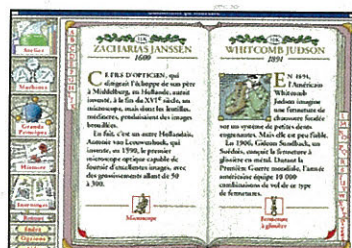 ZACHARIAS JANSSEN
1600
CE FILS D'OPTICIEN, qui
dirigeait l'échoppe de son père
à Middelburg, en Hollande, aurait
inventé, à la fin du XVIe siècle, un
microscope, mais dont les lentilles,
médiocres, produisaient des images
brouillées.
En fait, c'est un autre Hollandais,
Antonie van Leeuwenhoek, qui
inventa, en 1590, le premier
microscope optique capable de
fournir d'excellentes images, avec
des grossissements allant de 50
à 300.
Microscope
WHITCOMB JUDSON
1891
EN 1891,
l'Américain
Whitcomb
Judson imagine
une fermeture de
chaussure fondée
sur un système de petites dents
engrenantes. Mais elle est peu fiable.
En 1906, Gideon Sundback, un
Suédois, conçoit la fermeture à
glissière en métal. Durant la
Première Guerre mondiale, l'armée
américaine équipe 10 000
combinaisons de vol de ce type
de fermetures.
Fermeture
à glissière
Machines
Grands
Principes
Histoire
Inventeurs
Retour
Index
Options